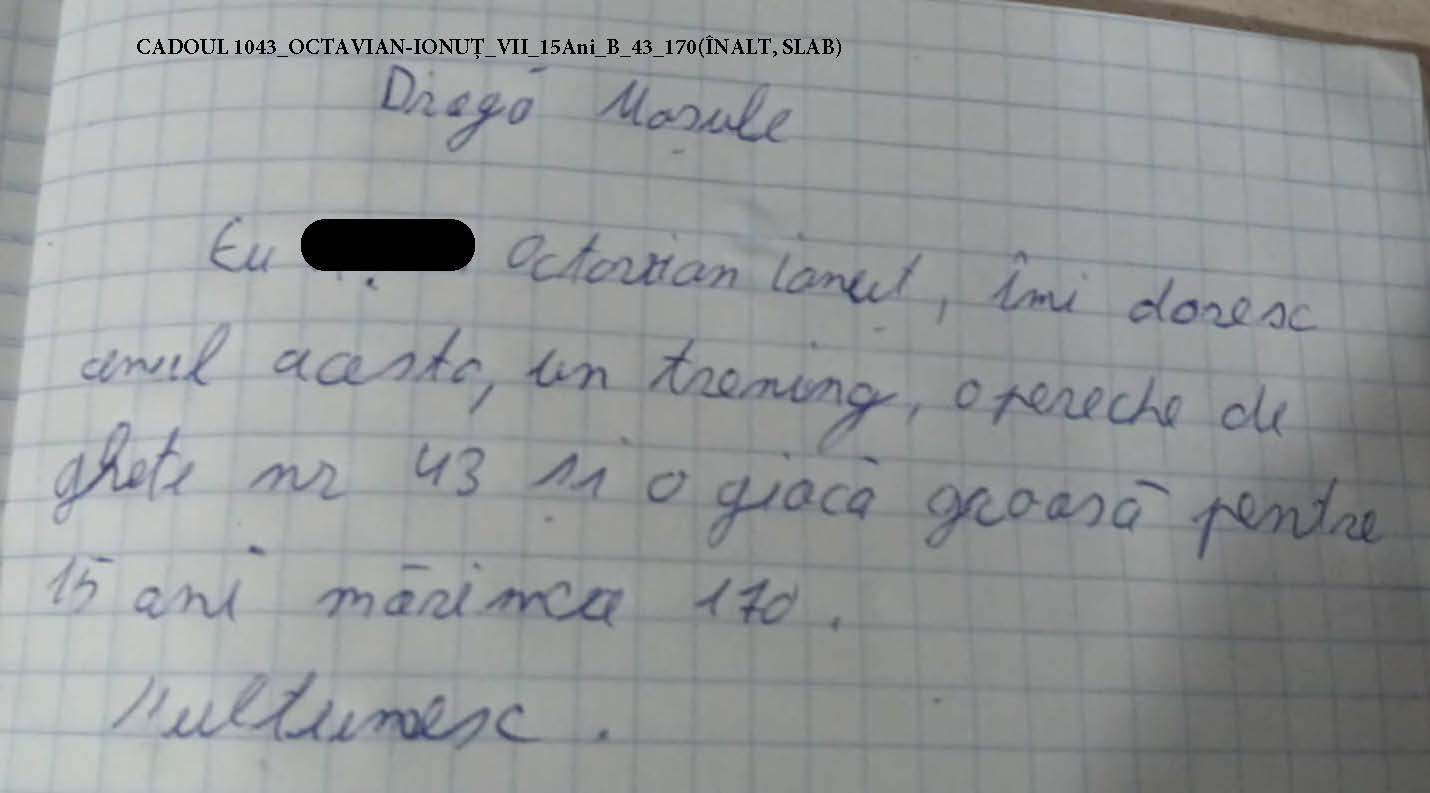 CADOUL 1043_OCTAVIAN-IONUȚ_VII_15Ani_B_43_170(ÎNALT, SLAB)
Dragă Mosule
Eu Octavian Ionut, îmi doresc
anul acesta, un trening, o pereche de
ghete nr 43 si o giacă groasă pentru
15 ani mărimea 170.
Multumesc.